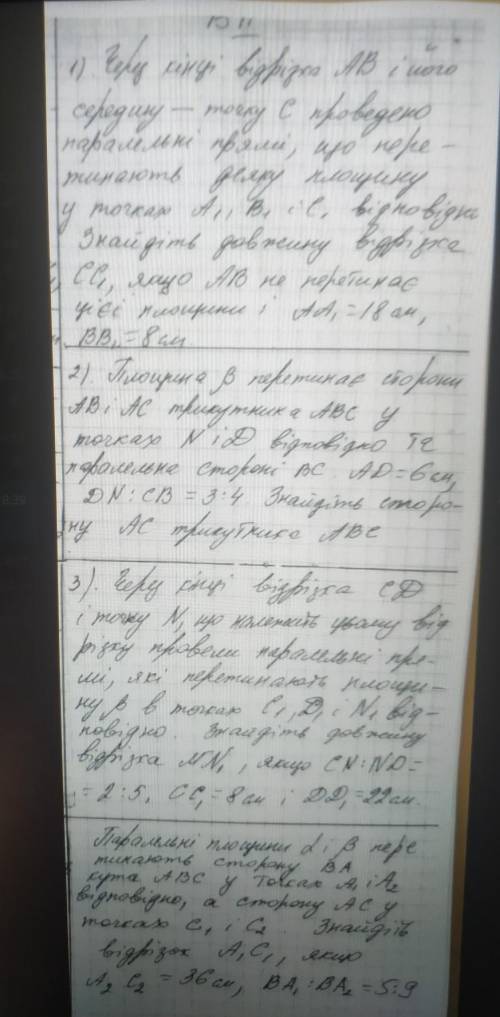 В II
1). Через кінці відрізка АВ і його
середину — точку С проведено
паралельні прямі, що пере-
тинають деяку площину
у точках А₁, В₁ і С₁ відповідно
Знайдіть довжину відрізка
СС₁, якщо АВ не перетинає
цієї площини і АА₁ = 18 см,
ВВ₁ = 8 см
2). Площина β перетинає сторони
АВ і АС трикутника АВС у
точках N і D відповідно та
паралельна стороні ВС. AD = 6 см,
DN : CB = 3:4. Знайдіть сторо-
ну АС трикутника АВС
3). Через кінці відрізка CD
і точку N, що належить цьому від
різку провели паралельні пря-
мі, які перетинають площи-
ну β в точках С₁, D₁ і N₁ від-
повідно. Знайдіть довжину
відрізка NN₁, якщо CN:ND =
= 2:5, СС₁ = 8 см і DD₁ = 22 см.
Паралельні площини α і β пере
тинають сторону ВА
кута АВС у точках А₁ і А₂
відповідно, а сторону АС у
точках С₁ і С₂. Знайдіть
відрізок А₁С₁, якщо
А₂С₂ = 36 см, ВА₁ : ВА₂ = 5:9